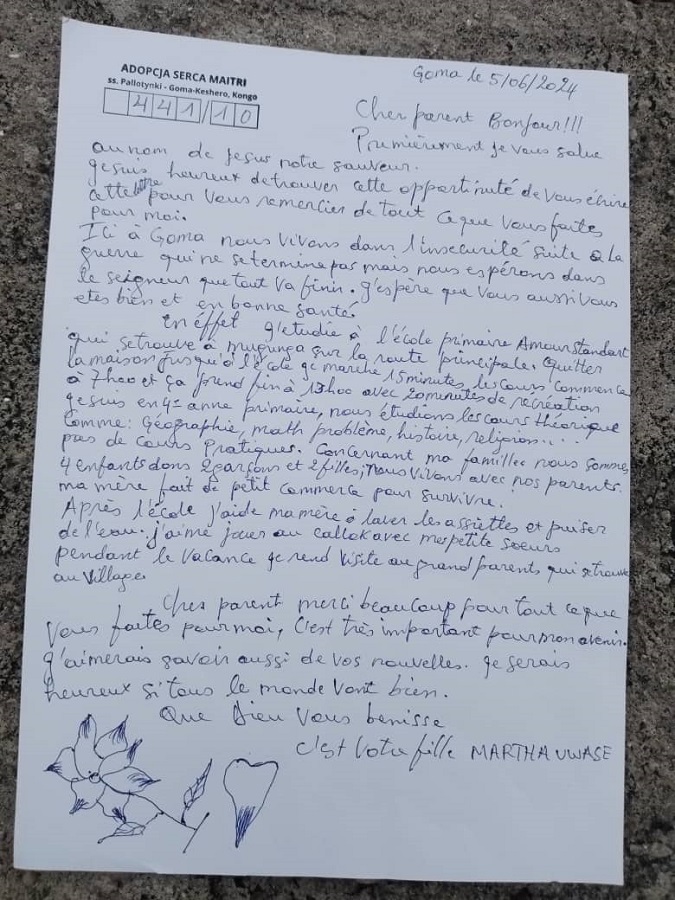 ADOPCJA SERCA MAITRI
ss. Pallotynki - Goma-Keshero, Kongo
441/10
Goma le 5/06/2024
Cher parent Bonjour!!!
Premièrement je vous salue
au nom de Jesus notre sauveur.
je suis heureux de trouver cette opportinuté de vous écrire
cette lettre pour vous remercier de tout ce que vous faites
pour moi.
Ici à Goma nous vivons dans l'insecurité suite à la
guerre qui ne se termine pas mais nous espérons dans
le seigneur que tout va finir. j'espère que vous aussi vous
etes bien et en bonne santé.
En éffet j'etudie à l'école primaire Amour standart
qui se trouve à mugunga sur la route principale. Quitter
la maison jusqu'à l'école je marche 15 minutes, les cours commence
à 7h00 et ça prend fin à 13h00 avec 20 minutes de recréation
je suis en 4e anne primaire, nous étudions les cours théorique
comme: Géographie, math problème, histoire, religion....
pas de cours pratiques. Concernant ma famillee nous sommes
4 enfants dons 2 garçons et 2 filles, nous vivons avec nos parents.
ma mère fait de petit commerce pour survivre.
Après l'école j'aide ma mère à laver les assiettes et puiser
de l'eau. j'aime jouer au callok avec mes petite soeurs
pendant le vacance je rend visite au grand parents qui se trouve
au village.
Cher parent merci beaucoup pour tout ce que
vous faites pour moi, c'est très important pour mon avenir.
j'aimerais savoir aussi de vos nouvelles. je serais
heureux si tous le monde vont bien.
Que Dieu vous benisse
c'est votre fille MARTHA UWASE